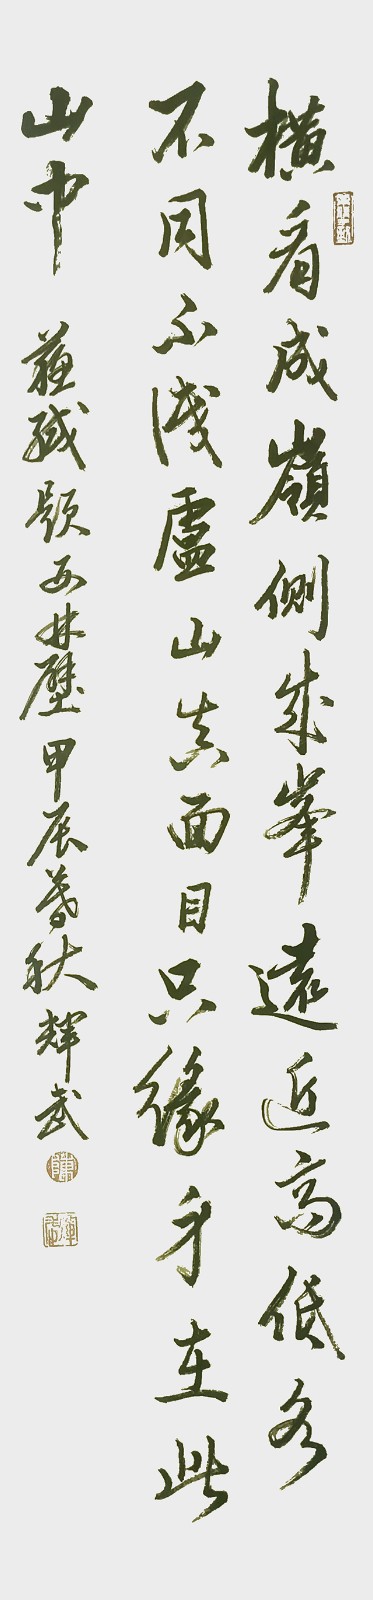 橫看成嶺側成峯遠近高低各
不同不識盧山真面目只緣身在此
山中 蘇軾題西林壁甲辰暮秋輝武